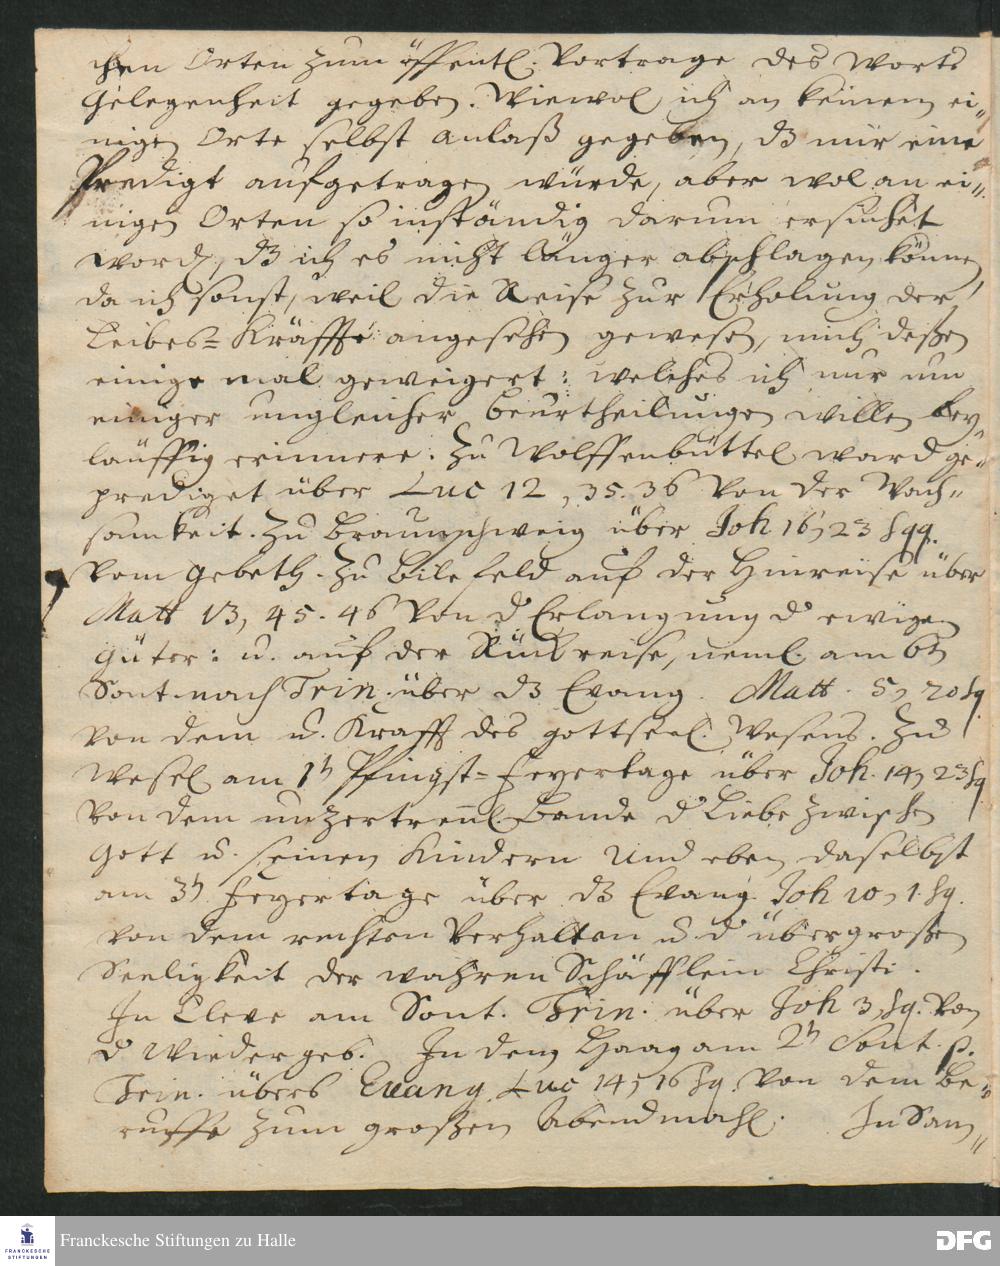 chen Orten zum öffentl. Vortrage des Worts
Gelegenheit gegeben. Wiewol ich an keinem ei-
nigen Orte selbst Anlaß gegeben, dz mir eine
Predigt aufgetragen würde, aber wol an ei-
nigen Orten so inständig darum ersuchet
word, dz ich es nicht länger abschlagen können,
da ich sonst, weil die Reise zur Erholung der
Leibes-Kräffte angesehen gewesen, mich deßen
einige mal geweigert: welches ich nur um
einiger ungleicher Beurtheilungen willen bey-
läuffig erinnere. Zu Wolffenbüttel ward ge-
prediget über Luc 12, 35. 36 von der Wach-
samkeit. Zu Braunschweig über Joh 16, 23 sqq.
vom Gebeth. Zu Bilefeld auf der Hinreise über
Matt 13, 45. 46 von d Erlangung d ewigen
Güter: u. auf der Rückreise, neml. am 6t
Sont. nach Trin. über dz Evang. Matt. 5, 20 sq.
von dem u. Krafft des gottseel. Wesens. Zu
Wesel am 1t Pfingst-Feyertage über Joh. 14, 23 sq
von dem unzertrenl. Bande d Liebe zwischen
Gott u. seinen Kindern und eben daselbst
am 3t Feyertage über dz Evang. Joh 10, 1. sq.
von dem rechten Verhalten u. d übergroßen
Seeligkeit der wahren Schäfflein Christi.
In Cleve am Sont. Trin. über Joh 3, sq. von
d Wiedergeb. In dem Haag am 2t Sont. p.
Trin. übers Evang. Luc 14, 16 sq. von dem Be-
ruffe zum großen Abendmahl. In Sam-
Franckesche Stiftungen zu Halle
FRANCKESCHE
STIFTUNGEN
DFG